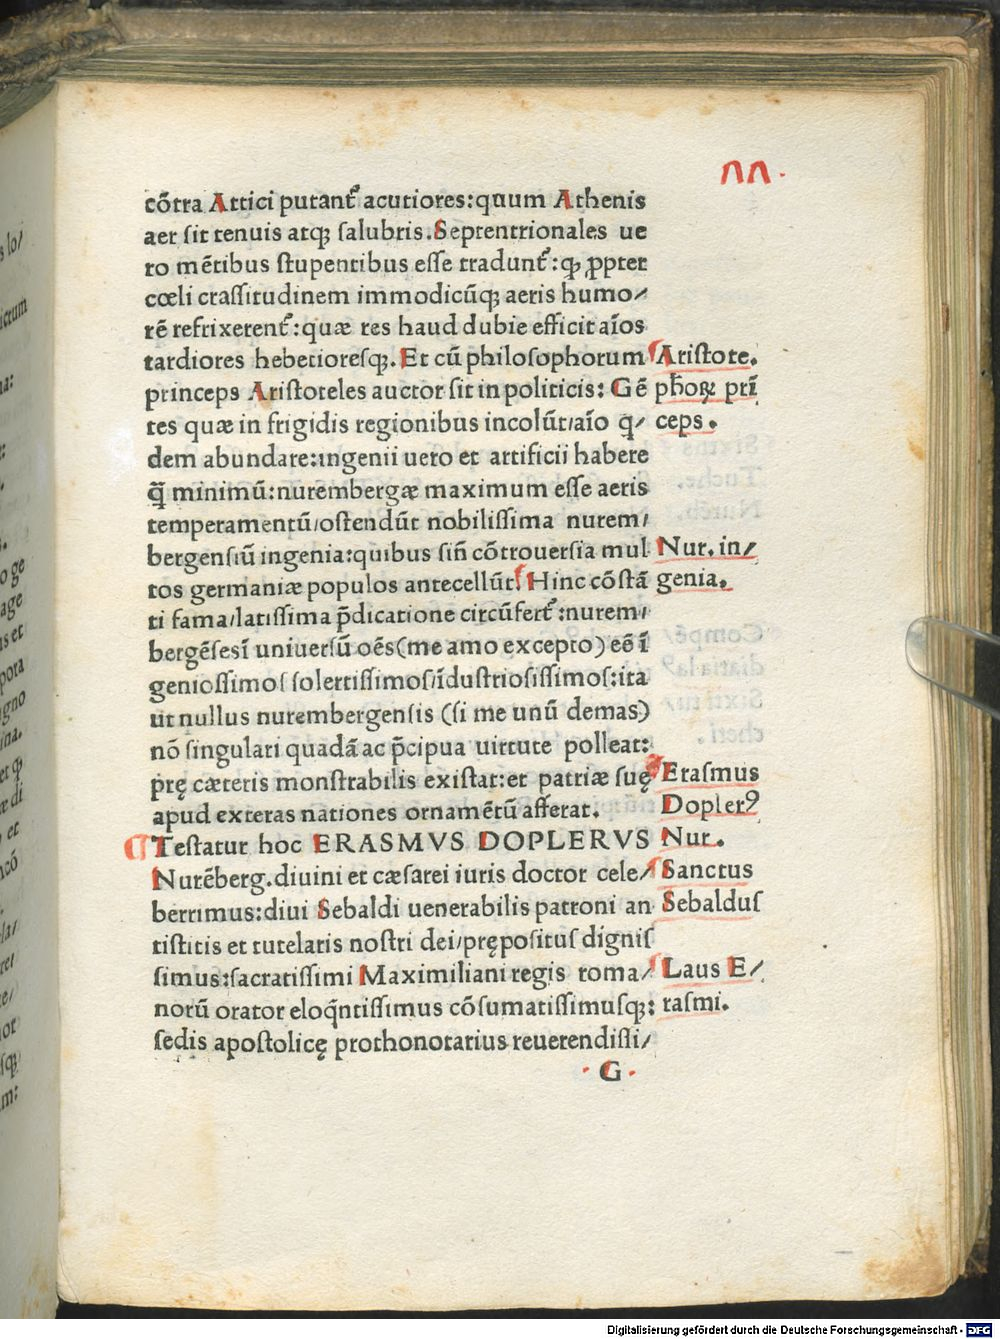 ꓥꓥ.
cõtra Attici putant᷑ acutiores:quum Athenis
aer sit tenuis atqꝫ salubris.Septentrionales ue
ro mẽtibus stupentibus esse tradunt᷑:qꝫ ꝓpter
cœli crassitudinem immodicũqꝫ aeris humo/
rẽ refrixerent᷑:quæ res haud dubie efficit aĩos
tardiores hebetioresqꝫ.Et cũ philosophorum
Aristote.
princeps Aristoteles auctor sit in politicis: Gẽ
pħoꝝ prĩ
tes quæ in frigidis regionibus incolũt/aĩo q̃/
ceps.
dem abundare:ingenii uero et artificii habere
q̃ minimũ:nurembergæ maximum esse aeris
temperamentũ/ostendũt nobilissima nurem/
bergensiũ ingenia:quibus siñ cõtrouersia mul
Nur.in/
tos germaniæ populos antecellũt.Hinc cõstã
genia.
ti fama/latissima p̃dicatione circũfert᷑:nurem/
bergẽsesĩ uniuersũ oẽs(me amo excepto)eẽ ĩ
geniossimos solertissimos/ĩdustriosissimos:ita
ut nullus nurembergensis (si me unũ demas)
nõ singulari quadã ac p̃cipua uirtute polleat:
pręcæteris monstrabilis existat:et patriæ suę
Erasmus
apud exteras nationes ornamẽtũ afferat.
Doplerꝰ
Testatur hoc ERASMVS DOPLERVS
Nur.
Nurẽberg.diuini et cæsarei iuris doctor cele/
Sanctus
berrimus:diui Sebaldi uenerabilis patroni an
Sebaldus
tistitis et tutelaris nostri dei/prępositus dignis
simus:sacratissimi Maximiliani regis roma/
Laus E/
norũ orator eloq̃ntissimus cõsumatissimusqꝫ:
rasmi.
sedis apostolicę prothonotarius reuerendissi/
G
Digitalisierung gefördert durch die Deutsche Forschungsgemeinschaft - DFG